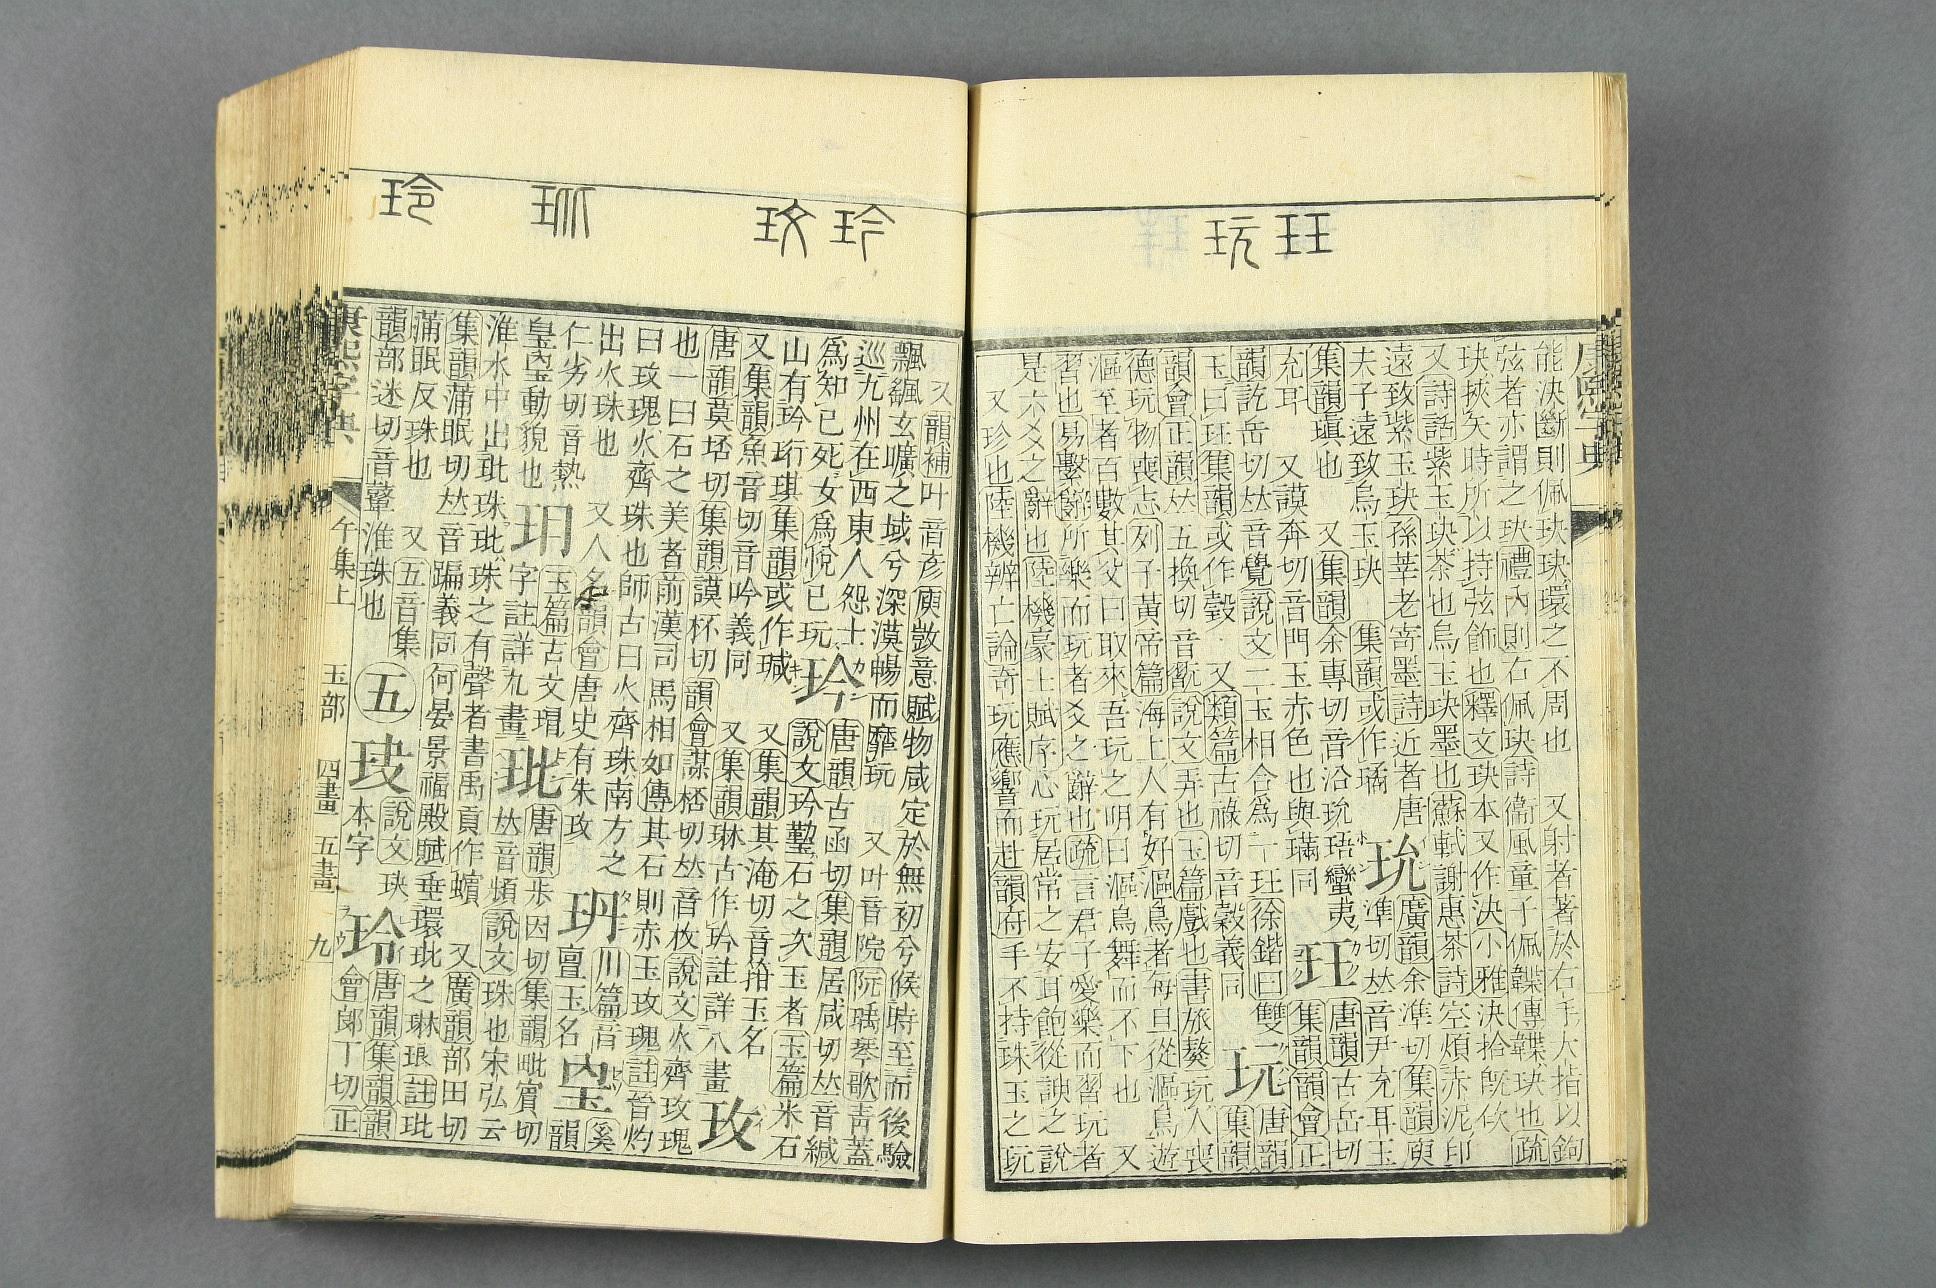 玨
玩
能決斷則佩玦玦環之不周也 又射者著於右手大指以鉤
弦者亦謂之玦禮內則右佩玦詩衞風童子佩韘傳韘玦也疏
玦挾矢時所以持弦飾也釋文玦本又作決小雅決拾旣佽
又詩話紫玉玦茶也烏玉玦墨也蘇軾謝惠茶詩空煩赤泥印
遠致紫玉玦孫莘老寄墨詩近者唐
夫子遠致烏玉玦 集韻或作璚
玧
廣韻余準切集韻庾
準切𠀤音尹充耳玉
集韻瑱也 又集韻余專切音沿玧珸蠻夷
充耳 又謨奔切音門玉赤色也與璊同
玨
唐韻古岳切
集韻韻會正
韻訖岳切𠀤音覺說文二玉相合爲一玨徐鍇曰雙
玉曰玨集韻或作瑴 又類篇古祿切音穀義同
玩
唐韻
集韻
韻會正韻𠀤五換切音翫說文弄也玉篇戲也書旅獒玩人喪
德玩物喪志列子黃帝篇海上人有好漚鳥者每旦從漚鳥遊
漚至者百數其父曰取來吾玩之明日漚鳥舞而不下也 又
習也易繫辭所樂而玩者爻之辭也疏言君子愛樂而習玩者
是六爻之辭也陸機豪士賦序心玩居常之安耳飽從諛之說
又珍也陸機辨亡論奇玩應響而赴韻府手不持珠玉之玩
康熙字典
玪
玟
玭
玲
又韻補叶音彥庾敳意賦物咸定於無初兮候時至而後驗
飄颻玄曠之域兮深漠暢而靡玩 又叶音院阮瑀琴歌靑蓋
巡九州在西東人怨士
爲知己死女爲悅己玩
玪
唐韻古函切集韻居咸切𠀤音緘
說文玪䥨石之次玉者玉篇米石
山有玪㺿琪集韻或作瑊 又集韻其淹切音箝玉名
又集韻魚音切音吟義同 又集韻琳古作玪註詳八畫
玟
唐韻莫桮切集韻謨杯切韻會謀桮切𠀤音枚說文火齊玫瑰
也一曰石之美者前漢司馬相如傳其石則赤玉玫瑰註晉灼
曰玫瑰火齊珠也師古曰火齊珠南方之
出火珠也 又人名韻會唐史有朱玫
玬
川篇音
亶玉名
𤣷
奚
韻
仁劣切音熱
皇𤣷動貌也
玥
玉篇古文珇
字註詳九畫
玭
唐韻步因切集韻毗賓切
𠀤音頻說文珠也宋弘云
淮水中出玭珠玭珠之有聲者書禹貢作蠙 又廣韻部田切
集韻蒲眠切𠀤音蹁義同何晏景福殿賦垂環玭之琳琅註玭
蒲眠反珠也 又五音集
韻部迷切音鼙淮珠也
五
玞
說文玦
本字
玲
唐韻集韻韻
會郎丁切正
康熙字典
午集上
玉部
四畫
五畫
九